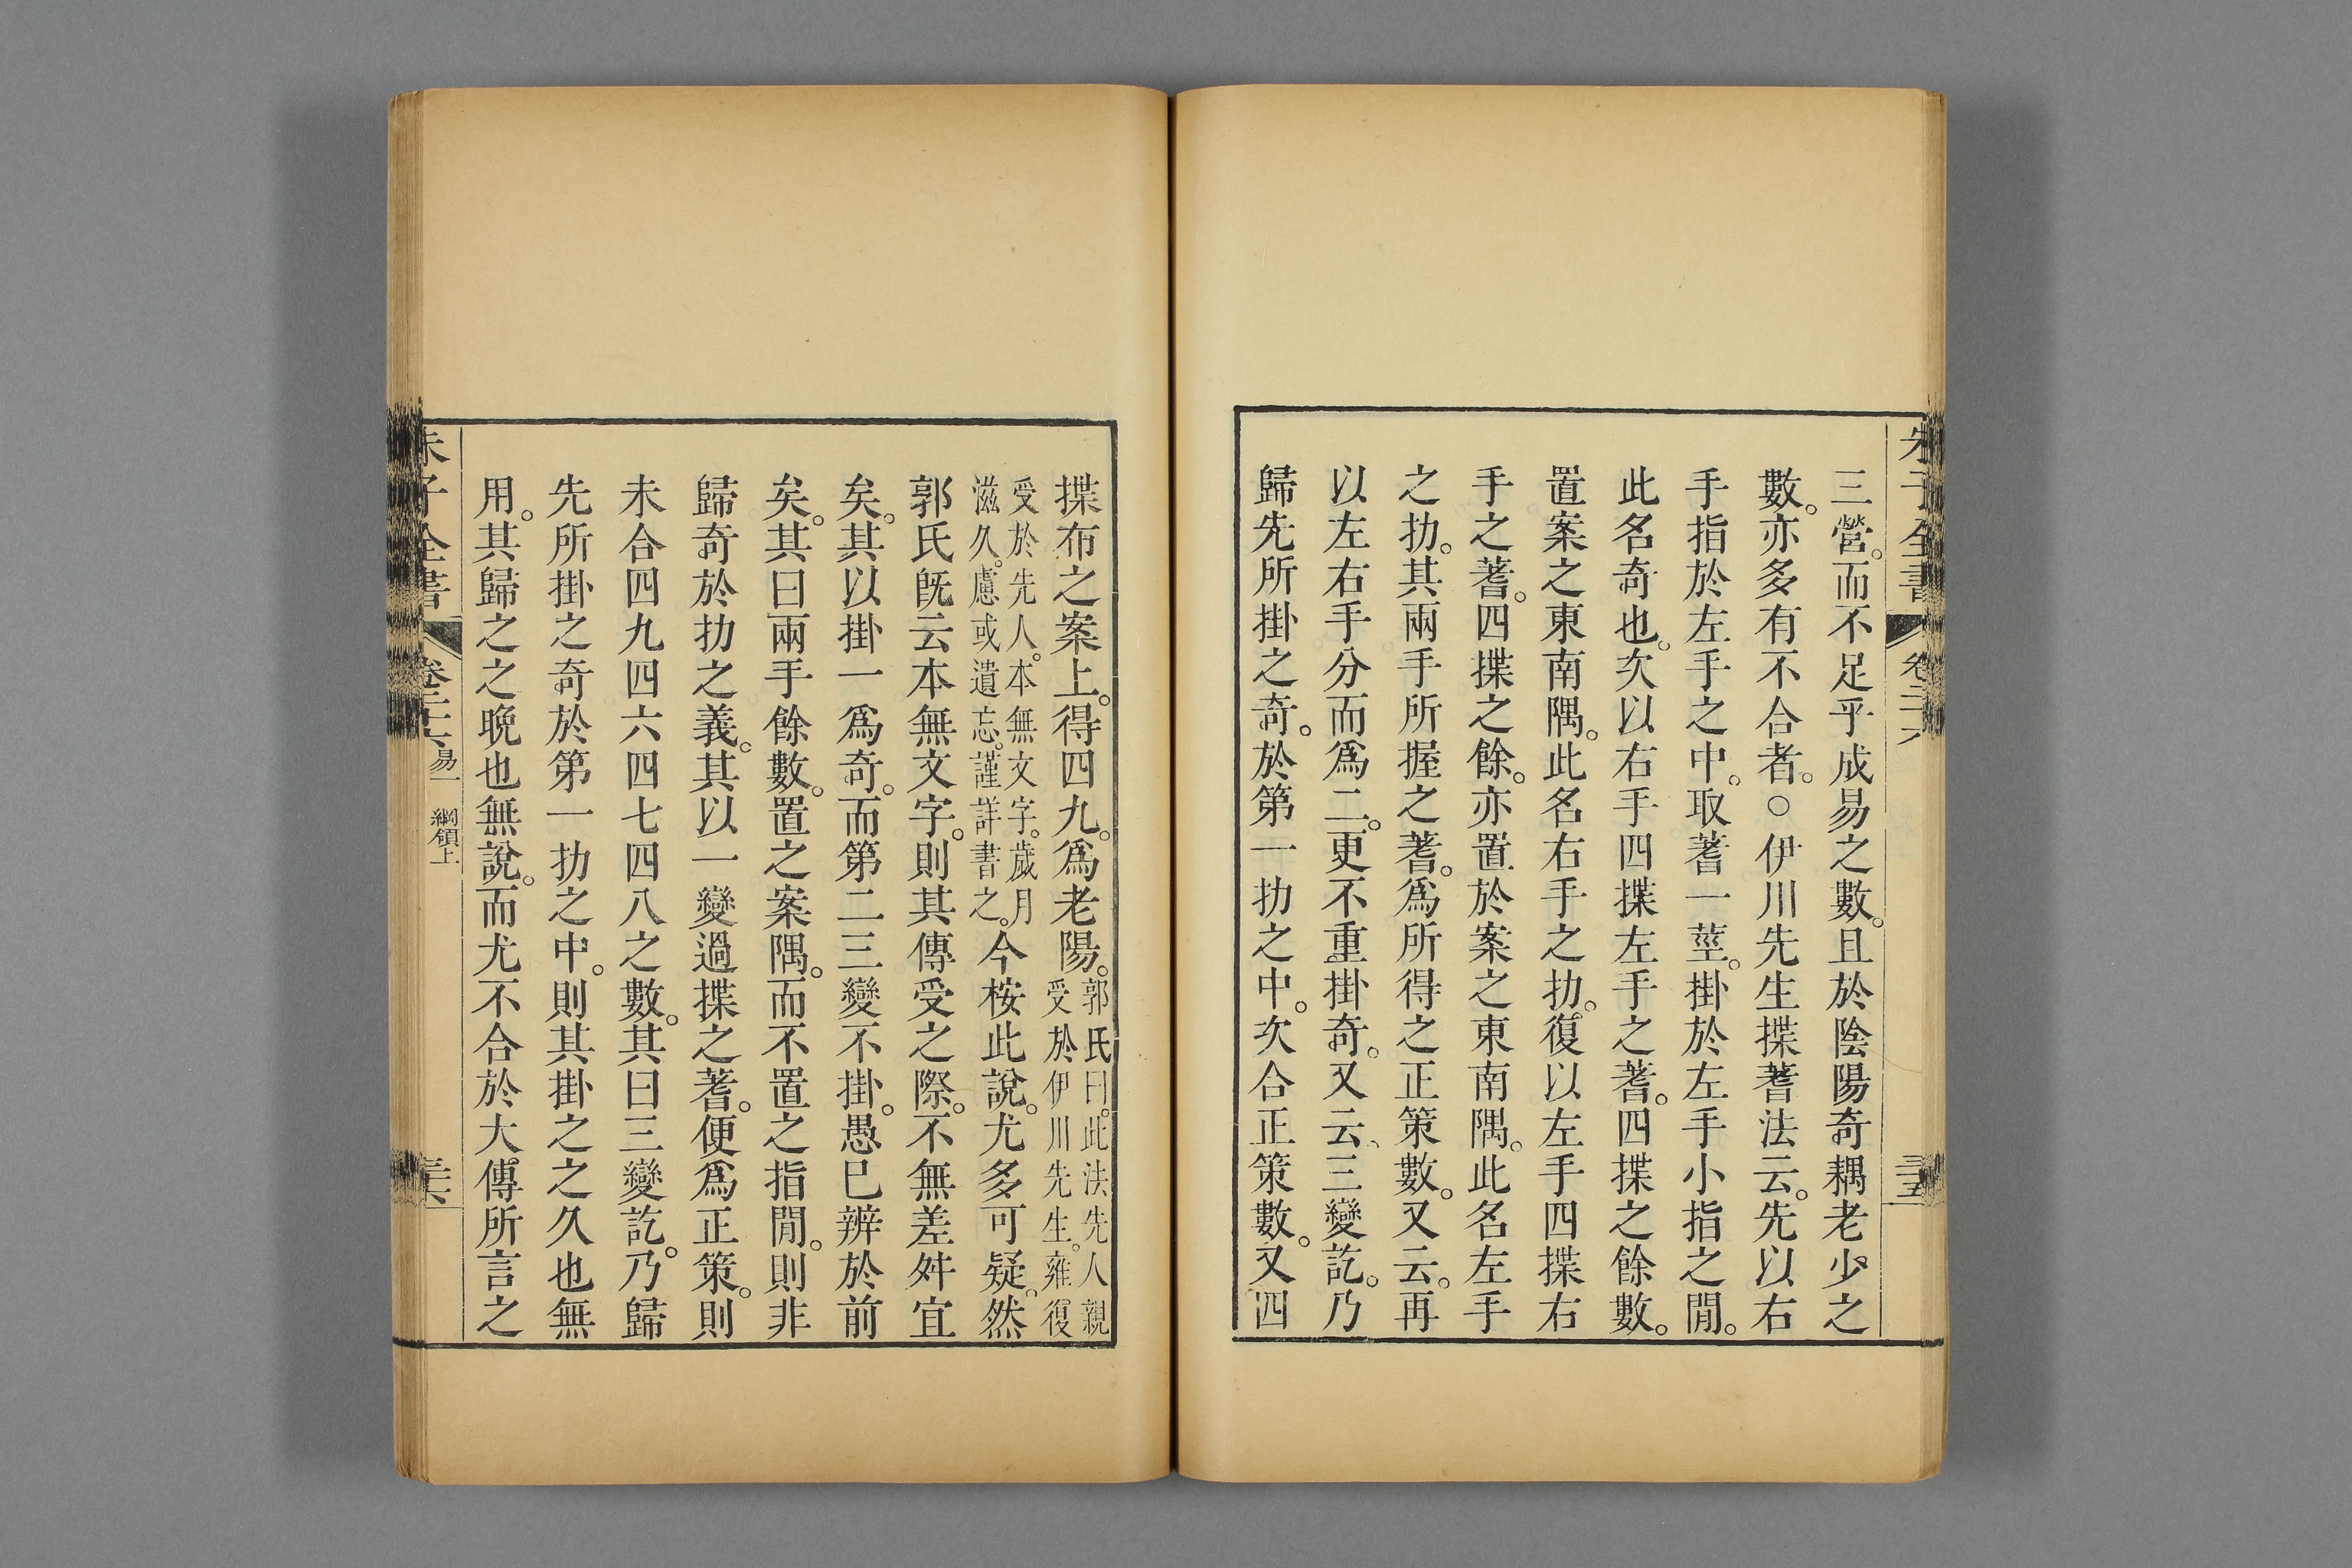 朱子全書 卷二十六 三十五
三營。而不足乎成易之數。且於陰陽奇耦老少之
數。亦多有不合者。○伊川先生揲蓍法云。先以右
手指於左手之中。取蓍一莖。掛於左手小指之閒。
此名奇也。次以右手四揲左手之蓍。四揲之餘數。
置案之東南隅。此名右手之扐。復以左手四揲右
手之蓍。四揲之餘。亦置於案之東南隅。此名左手
之扐。其兩手所握之蓍。爲所得之正策數。又云。再
以左右手分而爲二。更不重掛奇。又云、三變訖。乃
歸先所掛之奇。於第一扐之中。次合正策數。又四
揲布之案上。得四九。爲老陽。郭氏曰。此法先人親
受於伊川先生。雍復
受於先人。本無文字。歲月
滋久。慮或遺忘。謹詳書之。今桉此說。尤多可疑。然
郭氏旣云本無文字。則其傳受之際。不無差舛宜
矣。其以掛一爲奇。而第二三變不掛。愚巳辨於前
矣。其曰兩手餘數。置之案隅。而不置之指閒。則非
歸奇於扐之義。其以一變過揲之蓍。便爲正策。則
未合四九四六四七四八之數。其曰三變訖。乃歸
先所掛之奇於第一扐之中。則其掛之之久也無
用。其歸之之晚也無說。而尤不合於大傳所言之
朱子全書 卷二十六 易一 綱領上 三十六